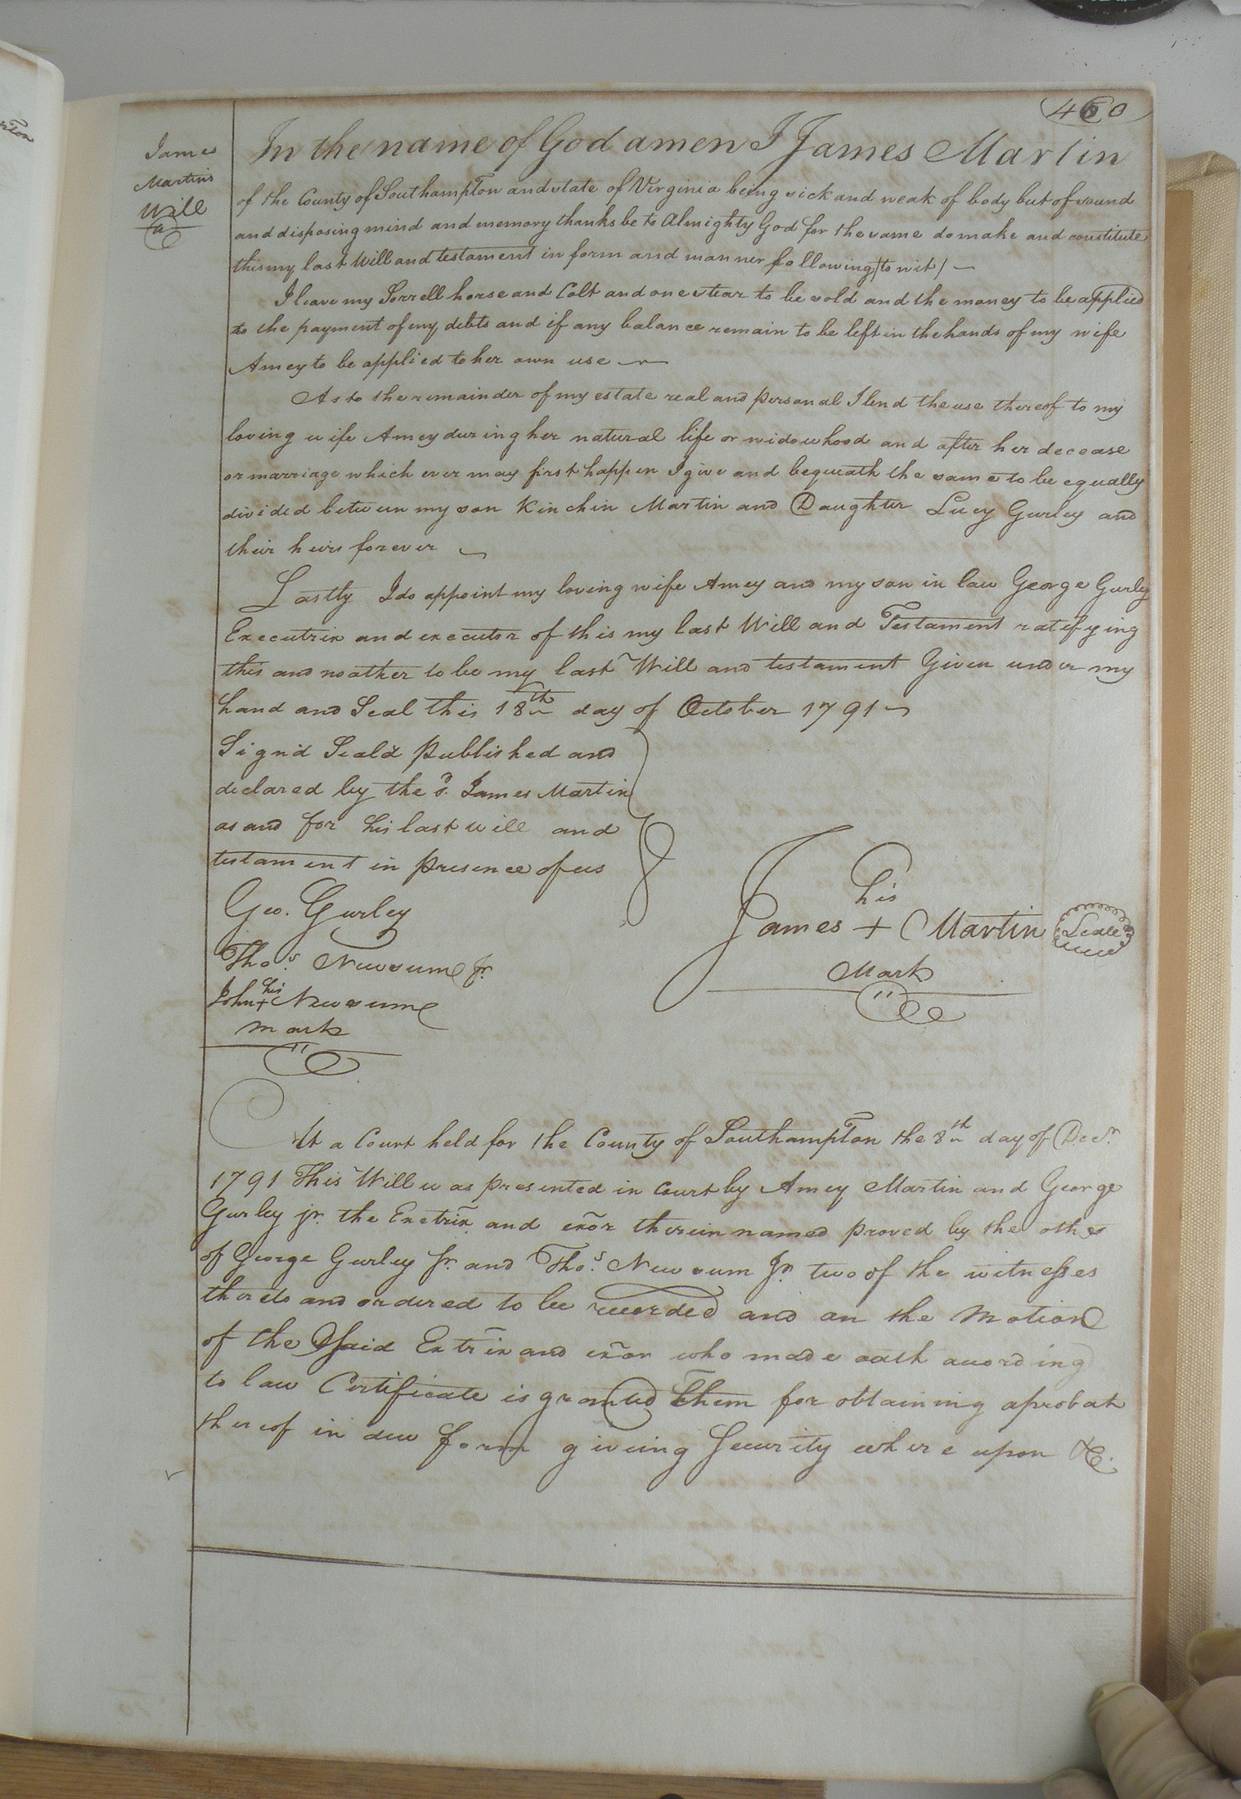 460
James
Martins
Will
In the name of God amen I James Martin
of the County of Southampton and state of Virginia being sick and weak of body but of sound
and disposing mind and memory thanks be to Almighty God for the same do make and constitute
this my last Will and testament in form and manner following (to wit) —
I leave my Sorrell horse and Colt and one stear to be sold and the money to be applied
to the payment of my debts and if any balance remain to be left in the hands of my wife
Amey to be applied to her own use —
As to the remainder of my estate real and personal I lend the use thereof to my
loving wife Amey during her natural life or widowhood and after her decease
or marriage which ever may first happen I give and bequeath the same to be equally
divided between my son Kinchin Martin and Daughter Lucy Gurley and
their heirs forever
Lastly I do appoint my loving wife Amey and my son in law George Gurley
Executrix and executor of this my last Will and Testament ratifying
this and no other to be my last Will and testament Given under my
hand and Seal this 18th day of October 1791
Signd Seald published and
declared by the sd. James Martin
as and for his last will and
testament in presence of us
Geo. Gurley
Thos. Newsum Jr.
John his + Newsum
mark
his
James + Martin Seale
Mark
At a Court held for the County of Southampton the 8th day of Decr.
1791 This Will was presented in Court by Amey Martin and George
Gurley jr. the Exetrix and exor therein named proved by the othes
of George Gurley Jr. and Thos. Newsum Jr. two of the witnesses
thereto and ordered to be recorded and on the Motion
of the Said Extrix and exor who made oath according
to law Certificate is granted Them for obtaining a probat
thereof in due form giveing Security where upon &c.